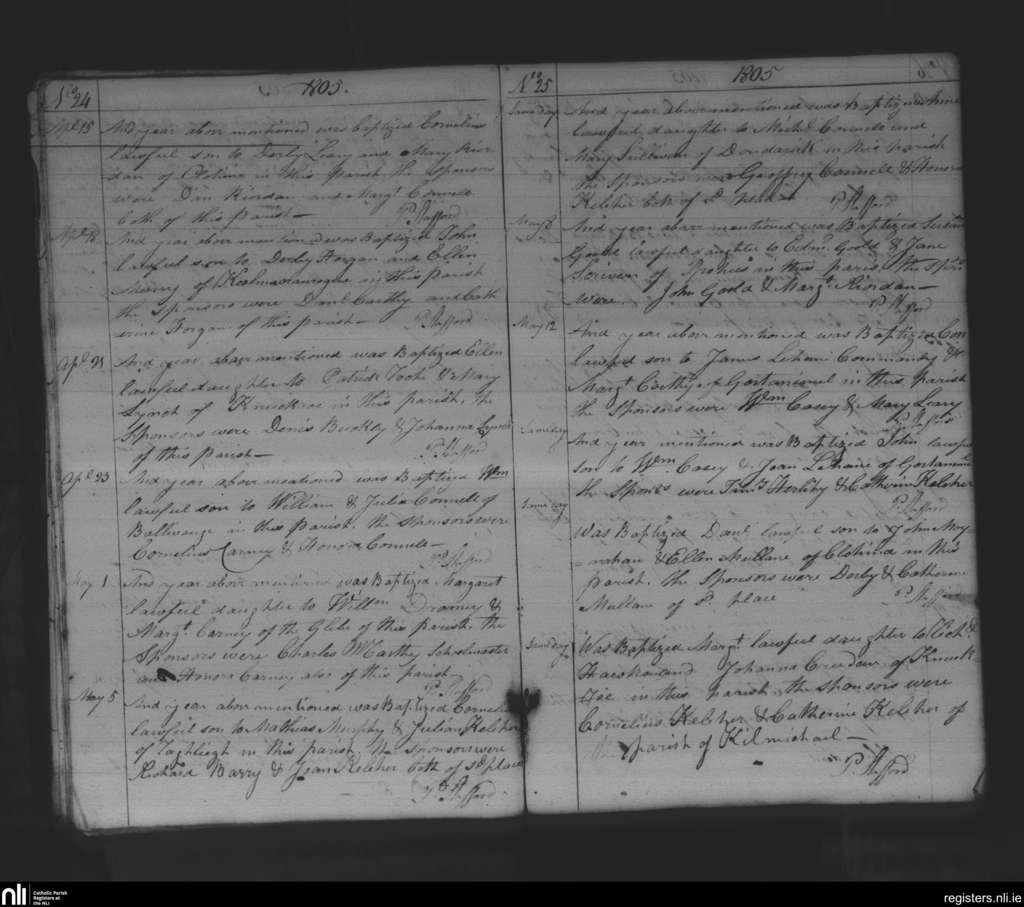 No 24
1805.
Apl 15 And year above mentioned was Baptized Cornelius
lawful son to Derby Leary and Mary Rior
dan of Clohina in this parish the Sponsors
were Dan Riordan and Margt Connell
both of this parish —
P: Stafford
Apl 18 And year above mentioned was Baptized John
lawful son to Derby Horgan and Ellen
Murry of in this parish
the Sponsors were Danl Carthy and Cath
erine Horgan of this parish —
P: Stafford
Apl 21 And year above mentioned was Baptized Ellen
lawful daughter to Patrick & Mary
Lynch of in this parish. the
Sponsors were Denis Buckley & Johanna Lynch
of this parish —
P: Stafford
Apl 23 And year above mentioned was Baptized Wm
lawful son to William & Julia Connell of
in this parish. the Sponsors were
Cornelius Carney & Honora Connell —
P: Stafford
May 1 And year above mentioned was Baptized Margaret
lawful daughter to Willm &
Margt. Carney of the Glebe of this parish. the
Sponsors were Charles McCarthy Schoolmaster
and Honora Carney also of this parish
P: Stafford
May 5 And year above mentioned was Baptized Cornelius
lawful son to Mathias Murphy & Julian Kelcher
of in this parish. the sponsors were
Richard Barry & Joan Kelcher both of sd place
P: Stafford
No 25
1805
Same day And year above mentioned was Baptized
lawful daughter to Michl Connell and
Mary Sullivan of in this parish
the Sponsors were Geoffry Connell & Honora
Kelcher both of
P: Stafford
May 8 And year above mentioned was Baptized
Goold lawful daughter to Edm. Goold & Jane
of in this paris. the Spors
were John Goold & Margt. Riordan —
P: Stafford
May 12 And year above mentioned was Baptized Con
lawful son to James &
Margt. Carthy of in this parish
the Sponsors were Wm Casey & Mary Leary
P: Stafford
Same day And year mentioned was Baptized John lawful
son to Wm Casey & Joan Lehane of
the Sponrs were & Catherin Kelcher
P: Stafford
Same day Was Baptized Danl lawful son to John Moy
=nahan & Ellen Mullane of Clohina in this
parish. the Sponsors were Derby & Catherine
Mullane of sd. place
P: Stafford
Same day Was Baptized Margt. lawful daughter to
and Johanna of
in this parish the sponsors were
Cornelius Kelcher & Catherine Kelcher of
parish of Kilmichael —
P: Stafford
nli
Catholic Parish
Registers at
the NLI
registers.nli.ie